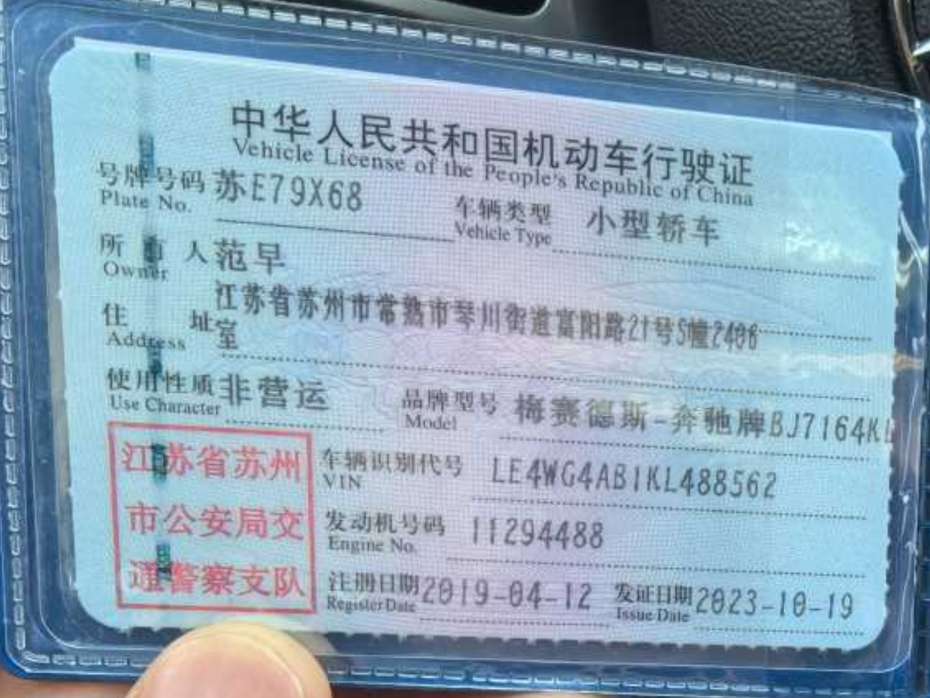 中华人民共和国机动车行驶证
Vehicle License of the People's Republic of China
号牌号码 苏E79X68 车辆类型 小型轿车
Plate No. Vehicle Type
所有人 范早
Owner
住址 江苏省苏州市常熟市琴川街道富阳路21号5幢2406
Address 室
使用性质 非营运 品牌型号 梅赛德斯-奔驰牌BJ7164KL
Use Character Model
江苏省苏州
市公安局交
通警察支队
车辆识别代号 LE4WG4AB1KL488562
VIN
发动机号码 11294488
Engine No.
注册日期 2019-04-12 发证日期 2023-10-19
Register Date Issue Date